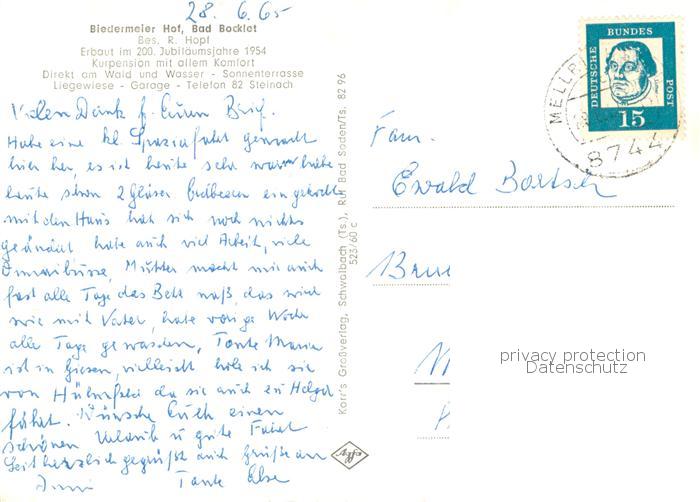 28. 6. 65
Biedermeier Hof, Bad Bocklet
Bes. R. Hopf
Erbaut im 200. Jubiläumsjahre 1954
Kurpension mit allem Komfort
Direkt am Wald und Wasser - Sonnenterrasse
Liegewiese - Garage - Telefon 82 Steinach
Vielen Dank f. Euren Brief.
Habe eine kl. Spazierfahrt gemacht
hier her, es ist heute sehr warm habe
heute schon 2 Gläser Erdbeeren eingekocht
mit dem Haus hat sich noch nichts
geändert habe auch viel Arbeit, viele
Mutter macht mir auch
fast alle Tage das Bett naß, das wird
wie mit Vater, habe vorige Woche
alle Tage gewaschen, Tante Maria
ist in Giesen, vielleicht hole ich sie
von da sie auch zu Helga
fährt. Wünsche Euch einen
schönen Urlaub u gute Fahrt
Seit herzlich gegrüßt auch Grüße an
Tante Else
Korr's Großverlag, Schwalbach (Ts.), Ruf Bad Soden/Ts. 82 96
523/60 c
Agfa
DEUTSCHE BUNDES POST
15
8744
Fam.
Ewald Bartsch
privacy protection
Datenschutz